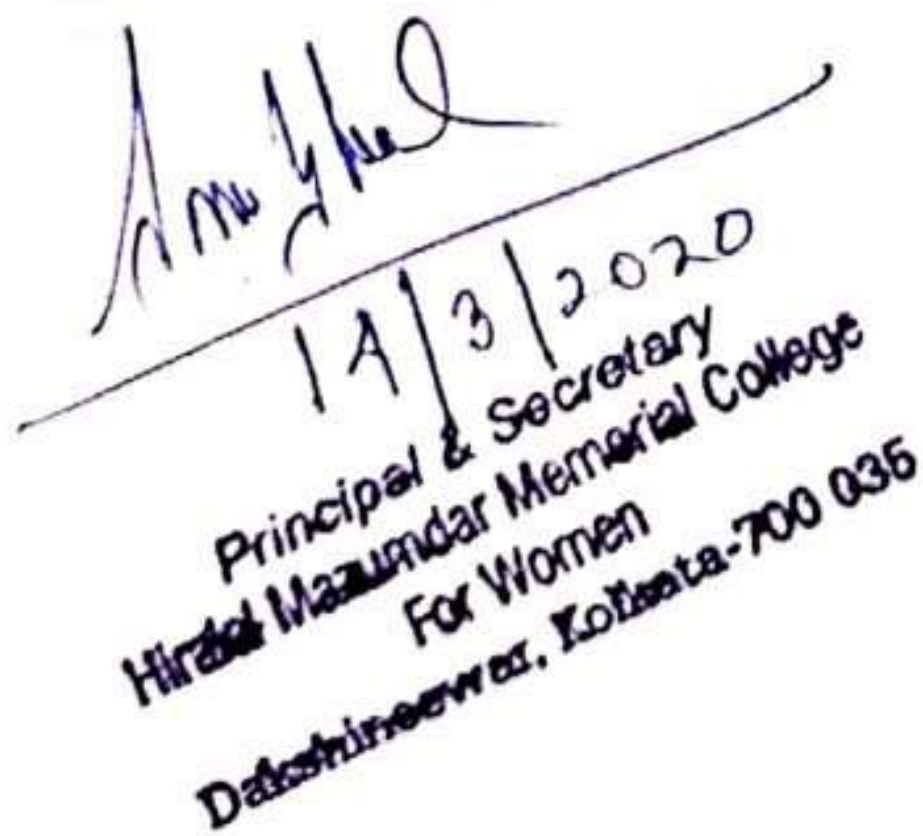 14/3/2020
Principal & Secretary
Hiralal Mazumdar Memorial College
For Women
Dakshineswar, Kolkata-700 035